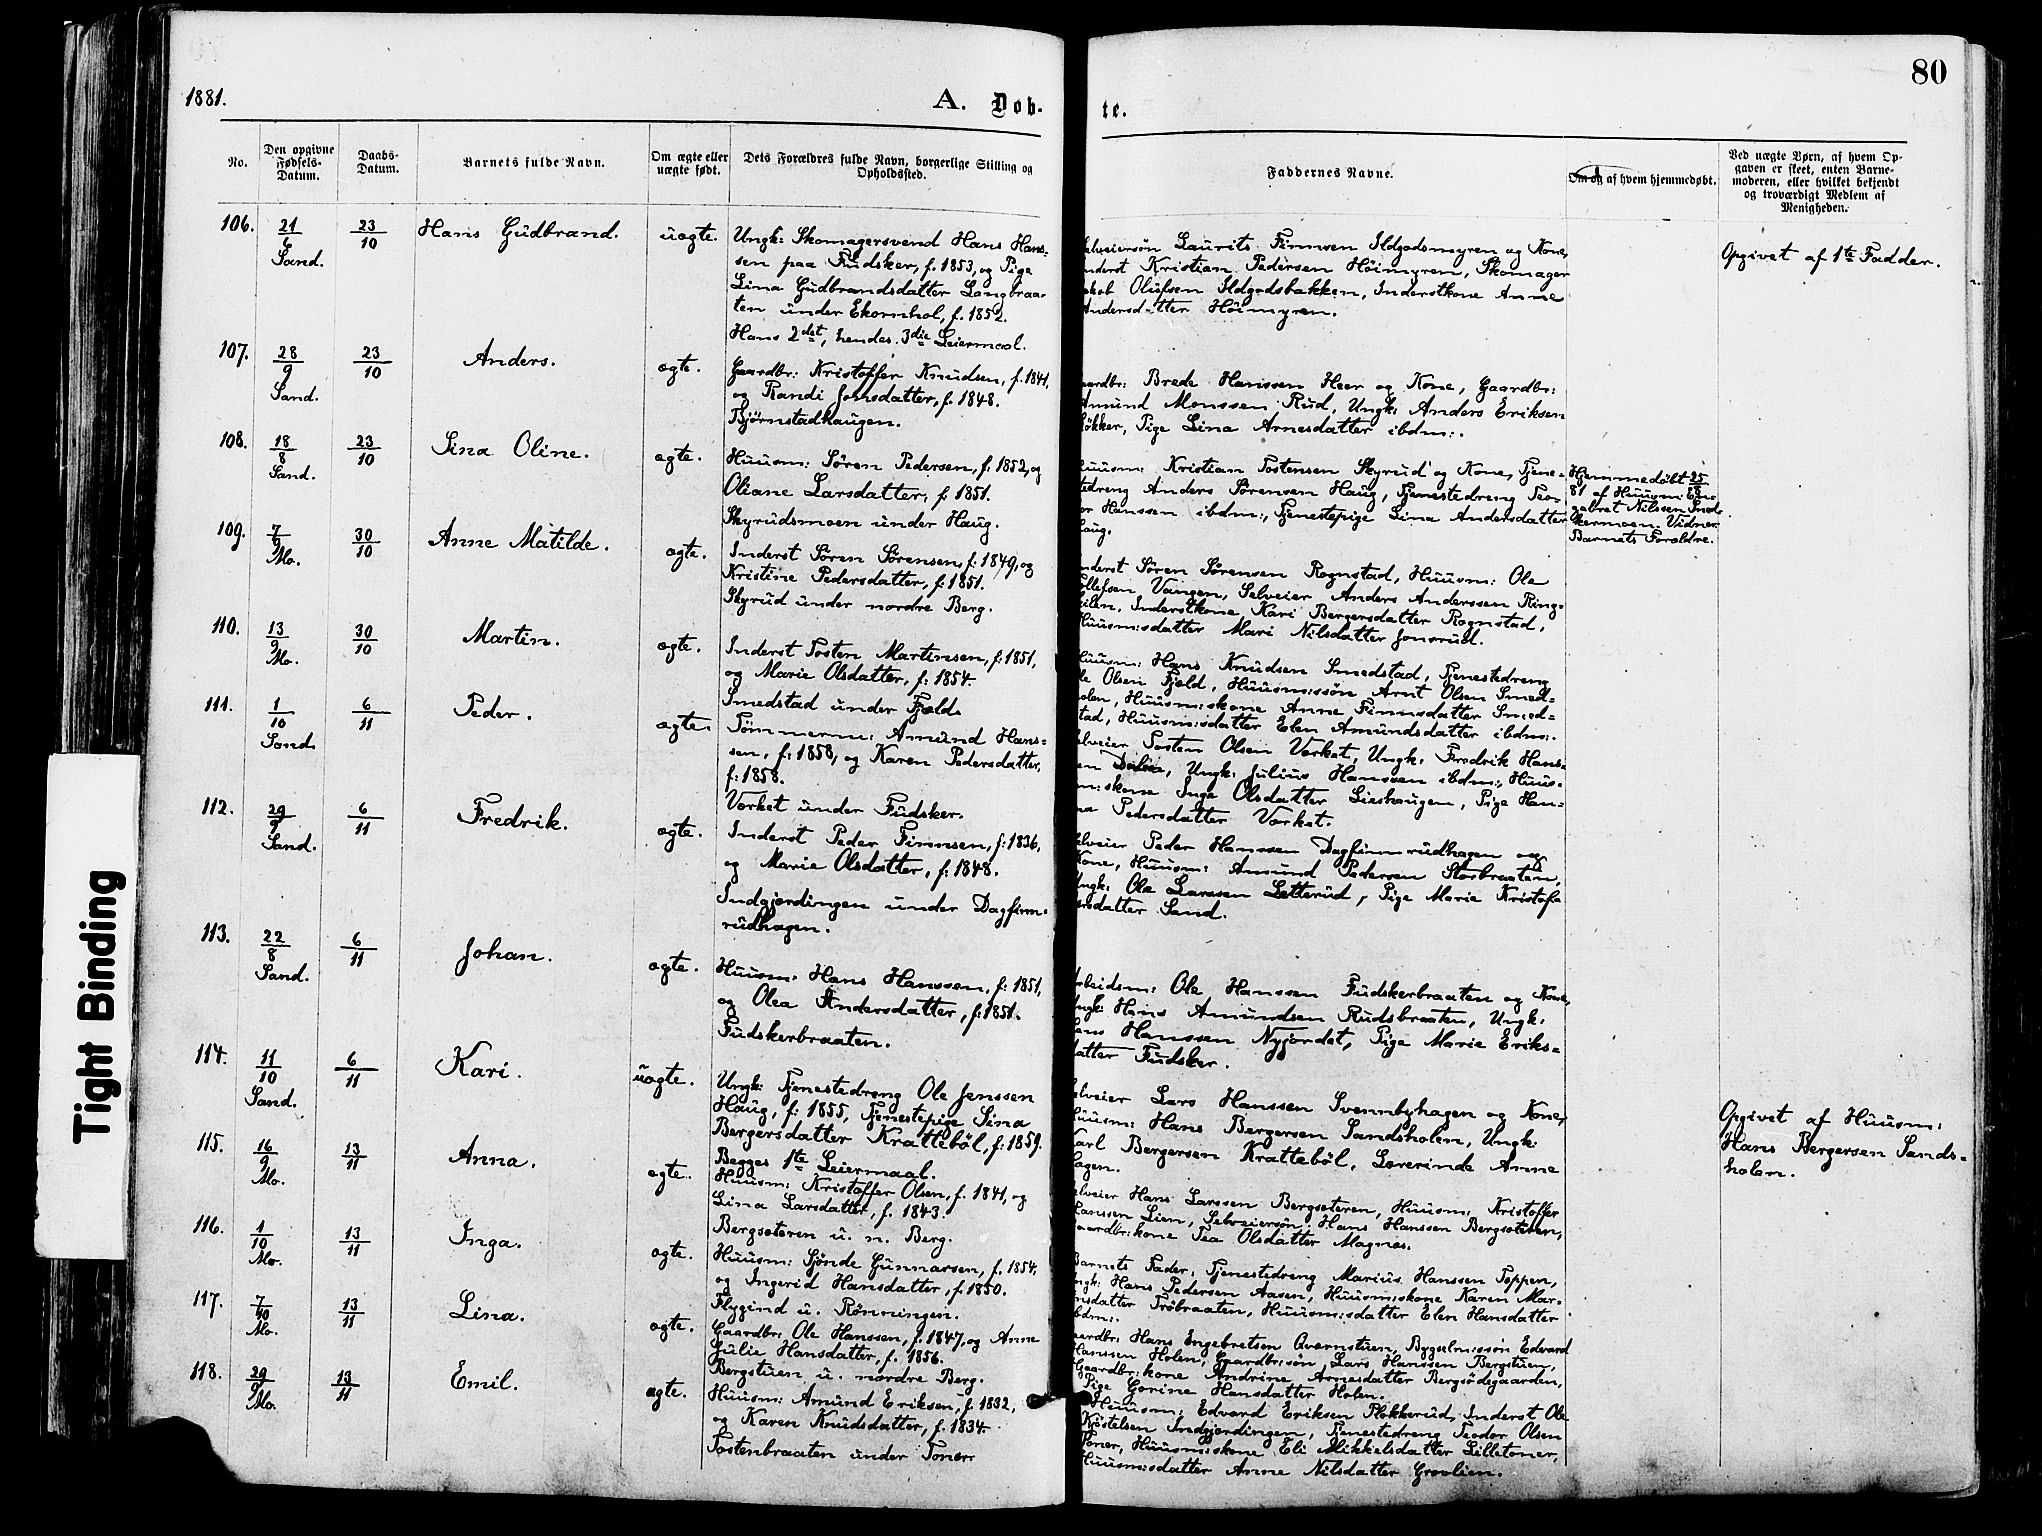 80
1881.
A. Døb-
te.
No.
Den opgivne
Fødsels-
Datum.
Daabs-
Datum.
Barnets fulde Navn.
Om ægte eller
uægte født.
Dets Forældres fulde Navn, borgerlige Stilling og
Opholdssted.
Faddernes Navne.
Om og af hvem hjemmedøbt.
Ved uægte Børn, af hvem Op-
gaven er skeet, enten Barne-
moderen, eller hvilket bekjendt
og troværdigt Medlem af
Menigheden.
106. 21/6 Sand. 23/10 Hans Gudbrand. uægte.
Ungk: Skomagersvend Hans Hans-
sen paa Fudsker, f. 1853, og Pige
Lina Gudbrandsdatter Langbraa-
ten under Ekornhol, f. 1852.
Hans 2det, hendes 3die Leiermaal.
Laurits Finnsen Ildgodsmyren og Kone,
Kristian Pedersen Høimyren, Skomager
Olufsen Ildgodsbakken, Inderstkone Anne
Høimyren.
Opgivet af 1te Fadder.
107. 28/9 Sand. 23/10 Anders. ægte.
Gaardbr: Kristoffer Knudsen, f. 1841,
og Randi Jonsdatter, f. 1848.
Bjørnstadhaugen.
Brede Hanssen Heer og Kone, Gaardbr:
Amund Monssen Rud, Ungk: Anders Eriksen
Pige Lina Arnesdatter ibdm:.
108. 18/8 Sand. 23/10 Sina Oline. ægte.
Huusm: Søren Pedersen, f: 1852, og
Oliane Larsdatter, f: 1851.
Skyrudsmoen under Haug.
Huusm: Kristian Tostensen Skyrud og Kone, Tjene-
stedreng Anders Sørensen Haug, Tjenestedreng Teo-
dor Hanssen ibdm:, Tjenestepige Lina Andersdatter
Haug.
Hjemmedøbt 25/8
81 af Huusm: En-
gebret Nilssen
Vidner
Barnets Forældre.
109. 7/9 Mo. 30/10 Anne Matilde. ægte.
Inderst Søren Sørensen, f: 1849, og
Kristine Pedersdatter, f: 1851.
Skyrud under nordre Berg.
Inderst Søren Sørensen Rognstad, Huusm: Ole
Vangen, Selveier Anders Anderssen Ring-
Inderstkone Kari Bergersdatter Rognstad,
Huusm:sdatter Mari Nilsdatter Jonsrud.
110. 13/9 Mo. 30/10 Martin. ægte.
Inderst Tosten Martinsen, f: 1851,
og Marie Olsdatter, f: 1854.
Smedstad under Fjeld.
Huusm: Hans Knudsen Smedstad, Tjenestedreng
Ole Olsen Fjeld, Huusm:ssøn Arnt Olsen Smed-
holen, Huusm:skone Anne Finnsdatter Smed-
stad, Huusm:sdatter Elen Amundsdatter ibdm:.
111. 1/10 Sand. 6/11 Peder. ægte.
Tømmerm: Amund Hans-
sen, f: 1858, og Karen Pedersdatter,
f: 1858.
Værket under Fudsker.
Selveier Tosten Olsen Værket, Ungk: Fredrik Hans-
sen Ungk: Julius Hanssen ibdm:, Huus-
m:skone Inge Olsdatter Lieshaugen, Pige Han-
na Pedersdatter Værket.
112. 29/9 Sand. 6/11 Fredrik. ægte.
Inderst Peder Finnsen, f: 1836,
og Marie Olsdatter, f: 1848.
Indgjærdingen under Dagfinn-
rudhagen.
Selveier Peder Hanssen Dagfinnrudhagen og
Kone, Huusm: Amund Pedersen Storbraaten,
Ungk: Ole Larssen Letterud, Pige Marie Kristof-
fersdatter Sand.
113. 22/8 Sand. 6/11 Johan. ægte.
Huusm: Hans Hanssen, f: 1851,
og Olea Andersdatter, f: 1851.
Fudskerbraaten.
Arbeidsm: Ole Hanssen Fudskerbraaten og Kone,
Ungk: Hans Amundsen Rudsbraaten, Ungk:
Hans Hanssen Nyjordet, Pige Marie Eriks-
datter Fudsker.
114. 11/10 Sand. 6/11 Kari. uægte.
Ungk: Tjenestedreng Ole Jenssen
Haug, f: 1855, Tjenestepige Sina
Bergersdatter Krattebøl, f: 1859.
Begges 1te Leiermaal.
Selveier Lars Hanssen Svennbyhagen og Kone,
Huusm: Hans Bergersen Sandsholen, Ungk:
Karl Bergersen Krattebøl, Lærerinde Anne
Hagen.
Opgivet af Huusm:
Hans Bergersen Sands-
holen.
115. 16/9 Mo. 13/11 Anna. ægte.
Huusm: Kristoffer Olsen, f. 1841, og
Lina Larsdatter, f. 1843.
Bergsæteren u. n. Berg.
Selveier Hans Larssen Bergsæteren, Huusm: Kristoffer
Hanssen Lien, Selveiersøn Hans Hanssen Bergsæteren,
Gaardbr:kone Tea Olsdatter Magnæs.
116. 1/10 Mo. 13/11 Inga. ægte.
Huusm: Sjønde Gunnarsen, f. 1854,
og Ingerid Hansdatter, f. 1850.
Flygind u. Rønningen.
Barnets Fader, Tjenestedreng Marius Hanssen Toppen,
Ungk: Hans Pedersen Aasen, Huusm:skone Karen Mar-
tinsdatter Trøbraaten, Huusm:sdatter Elen Hansdatter
ibdm:.
117. 7/10 Mo. 13/11 Lina. ægte.
Gaardbr: Ole Hanssen, f. 1847, og Anne
Julie Hansdatter, f. 1856.
Bergstuen u. nordre Berg.
Gaardbr: Hans Engebretsen Qvernstuen, Bygselm:ssøn Edvard
Hanssen Holen, Gaardbr:søn Lars Hanssen Bergstuen,
Gaardbr:kone Andrine Arnesdatter Bergsødegaarden,
Pige Gorine Hansdatter Holen.
118. 29/9 Mo. 13/11 Emil. ægte.
Huusm: Amund Eriksen, f. 1832,
og Karen Knudsdatter, f. 1834.
Tostenbraaten under Toner.
Huusm: Edvard Eriksen Plokkerud, Inderst Ole
Indgjærdingen, Tjenestedreng Teodor Olsen
Toner, Huusm:skone Eli Mikkelsdatter Lilletoner,
Huusm:sdatter Anne Nilsdatter Grovlien.
Tight Binding